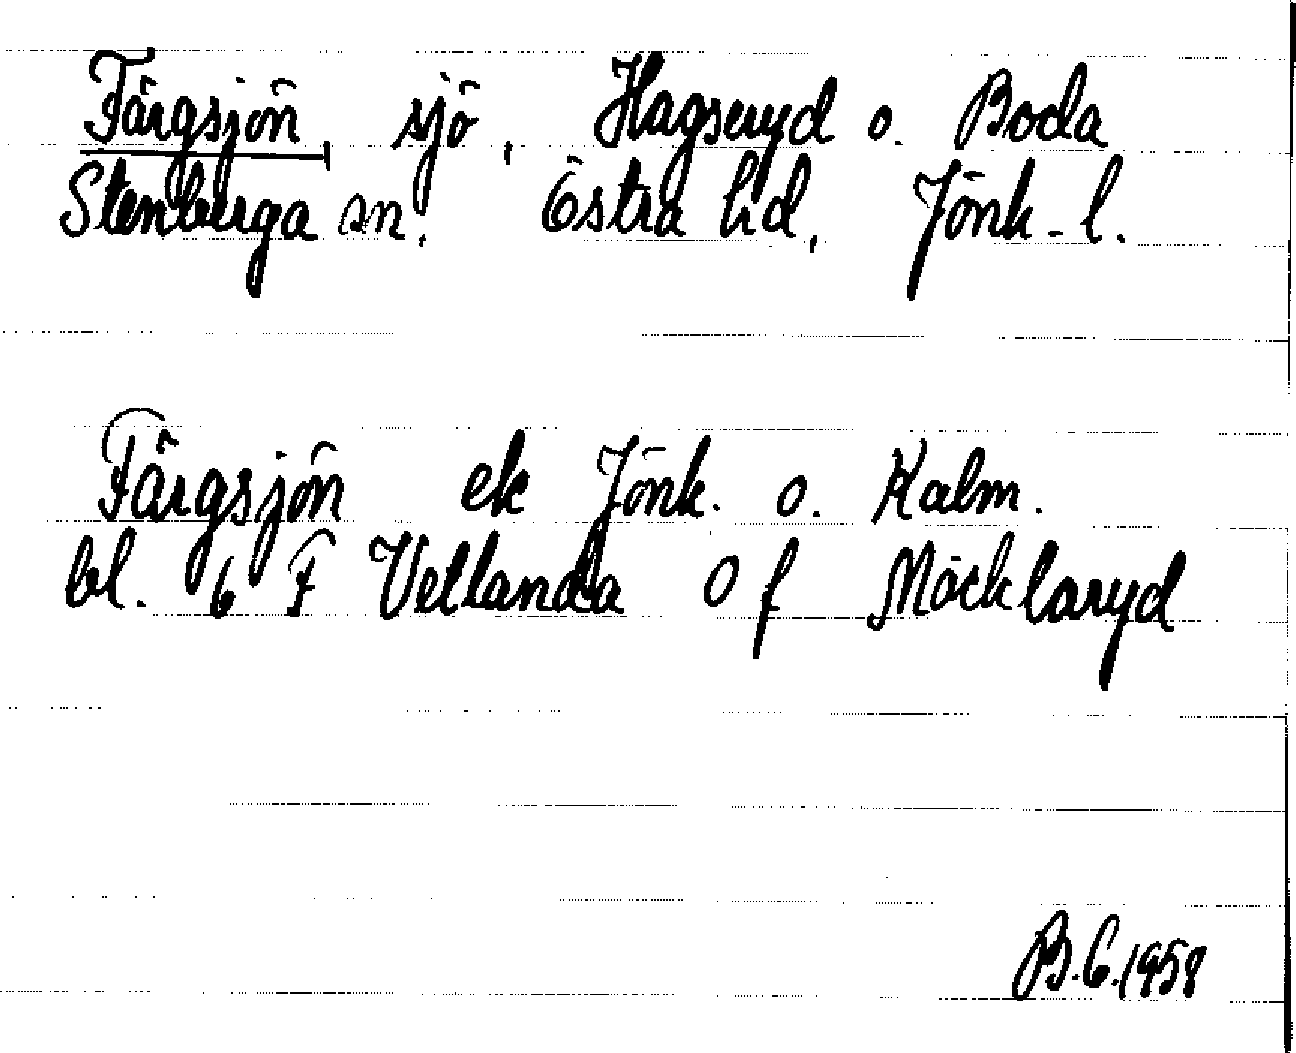 Färgsjön, sjö, Hagseryd o. Boda
Stenberga sn, Östra hd, Jönk-l.
Färgsjön ek Jönk. o. Kalm.
bl. 6 F Vetlanda 0 f Möcklaryd
B.C.1958